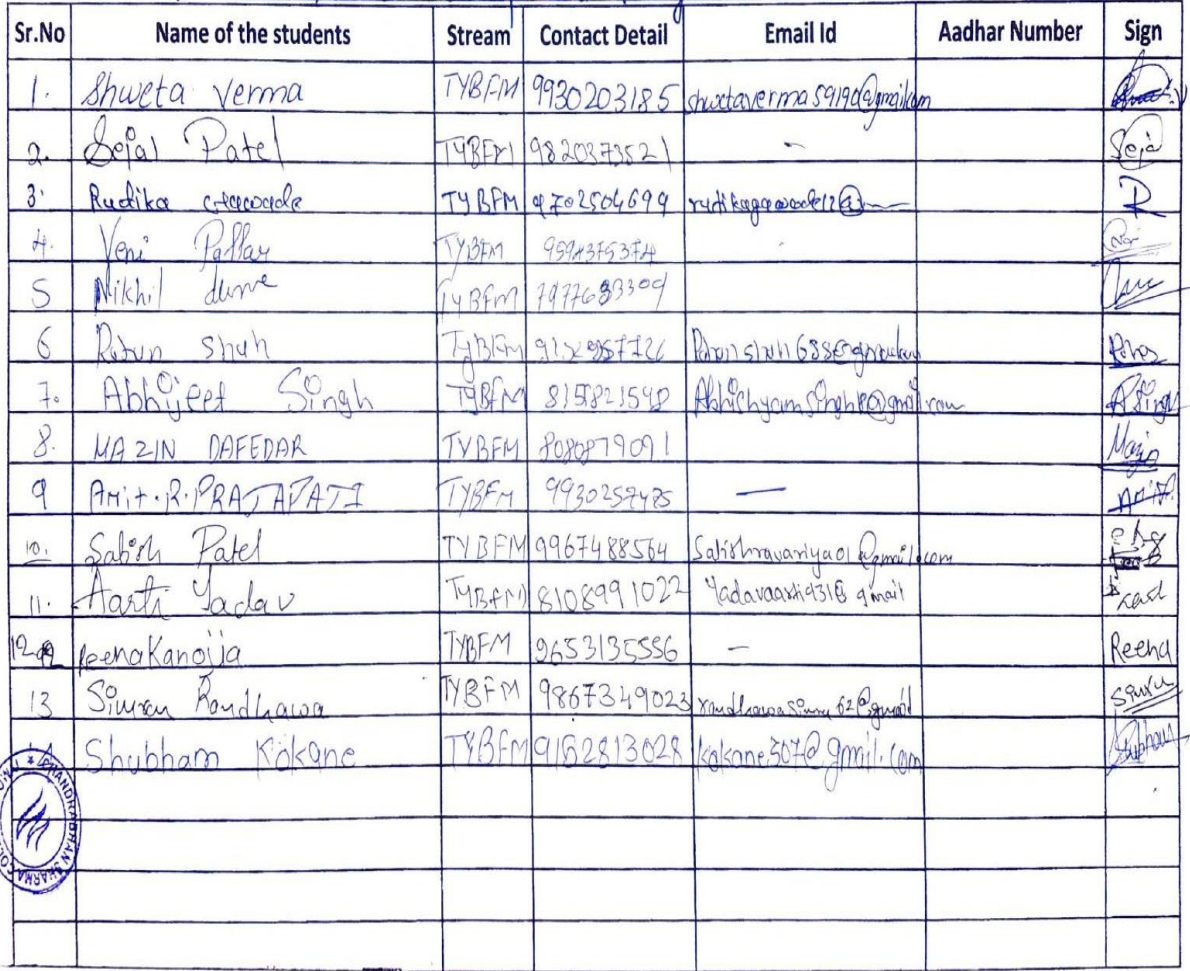 Sr.No Name of the students Stream Contact Detail Email Id Aadhar Number Sign
1. Shweta Verma TYBFM 9930203185 shwetaverma59190@gmail.com
2. Sejal Patel TYBFM 9820373521 - Seja
3. Rudika Gawade TYBFM 9702504699 rudikagawade12@ R
4. Veni Pallar TYBFM 9594375374
5 Nikhil dume TYBFM
6 Shah TYBFM
7. Abhijeet Singh TYBFM Abhishyamsingh@gmail.com ASingh
8. MAZIN DAFEDAR TYBFM 8080879091 Mazin
9 Amit.R.PRAJAPATI TYBFM 9930257475 — Amit
10. Satish Patel TYBFM 9967488564 Satishravariya01@gmail.com
11. Aarti Yadav TYBFM 8108991022 Yadavaarti931@gmail
12 Reena Kanojja TYBFM 9653135556 - Reena
13 Simran Randhawa TYBFM 9867349023 randhawasimru62@gmail Simru
Shubham Kokane TYBFM 9152813028 kokane307@gmail.com Shubham
CHANDRABHAN SHARMA COL